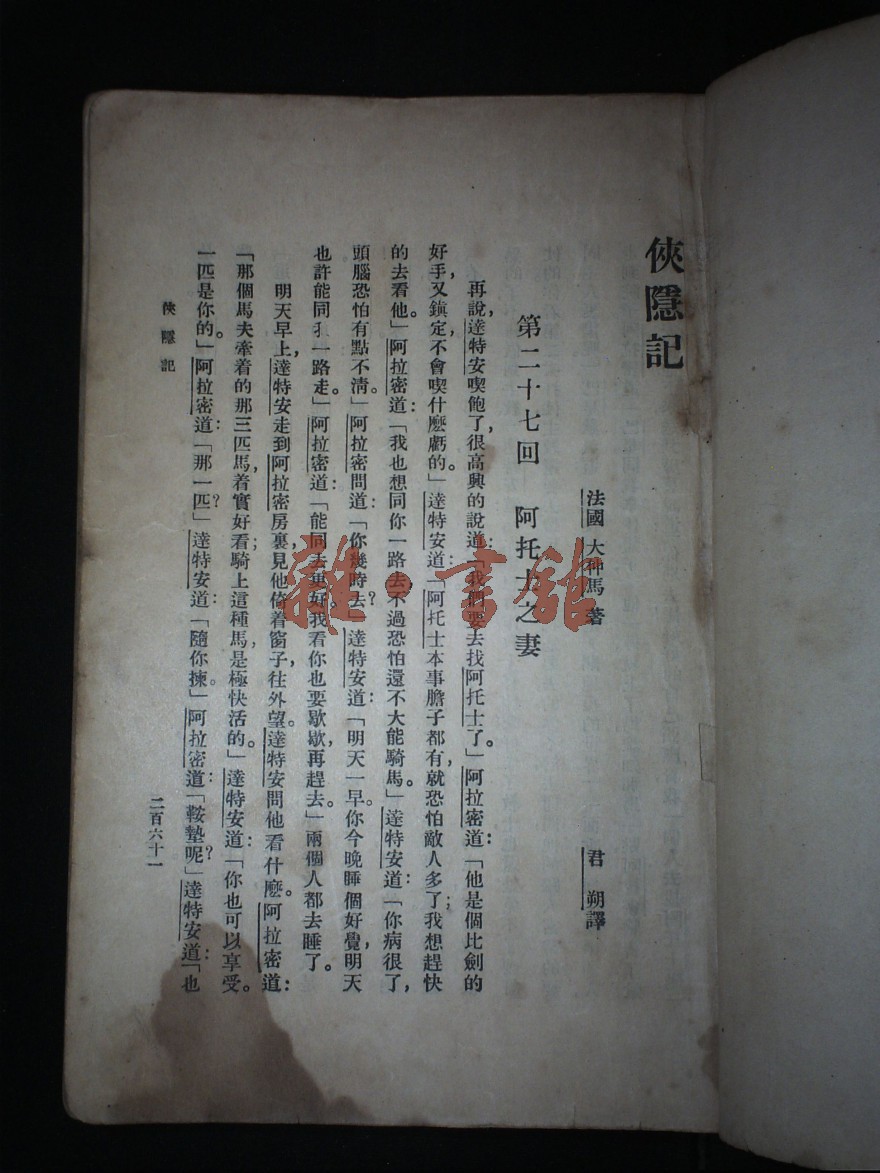 俠隱記
法國 大仲馬 著
君 朔 譯
第二十七回 阿托士之妻
再說，達特安喫飽了，很高興的說道：「我們要去找阿托士了。」阿拉密道：「他是個比劍的
好手，又鎮定，不會喫什麼虧的。」達特安道：「阿托士本事膽子都有，就恐怕敵人多了；我想趕快
的去看他。」阿拉密道：「我也想同你一路去，不過恐怕還不大能騎馬。」達特安道：「你病很了，
頭腦恐怕有點不清。」阿拉密問道：「你幾時去？」達特安道：「明天一早。你今晚睡個好覺，明天
也許能同我一路走。」阿拉密道：「能同去更好。我看你也要歇歇，再趕去。」兩個人都去睡了。
明天早上，達特安走到阿拉密房裏，見他倚着窗子，往外望。達特安問他看什麼。阿拉密道：
「那個馬夫牽着的那三匹馬，着實好看；騎上這種馬，是極快活的。」達特安道：「你也可以享受。
一匹是你的。」阿拉密道：「那一匹？」達特安道：「隨你揀。」阿拉密道：「鞍墊呢？」達特安道：「也
俠隱記
二百六十一
雜·書舘